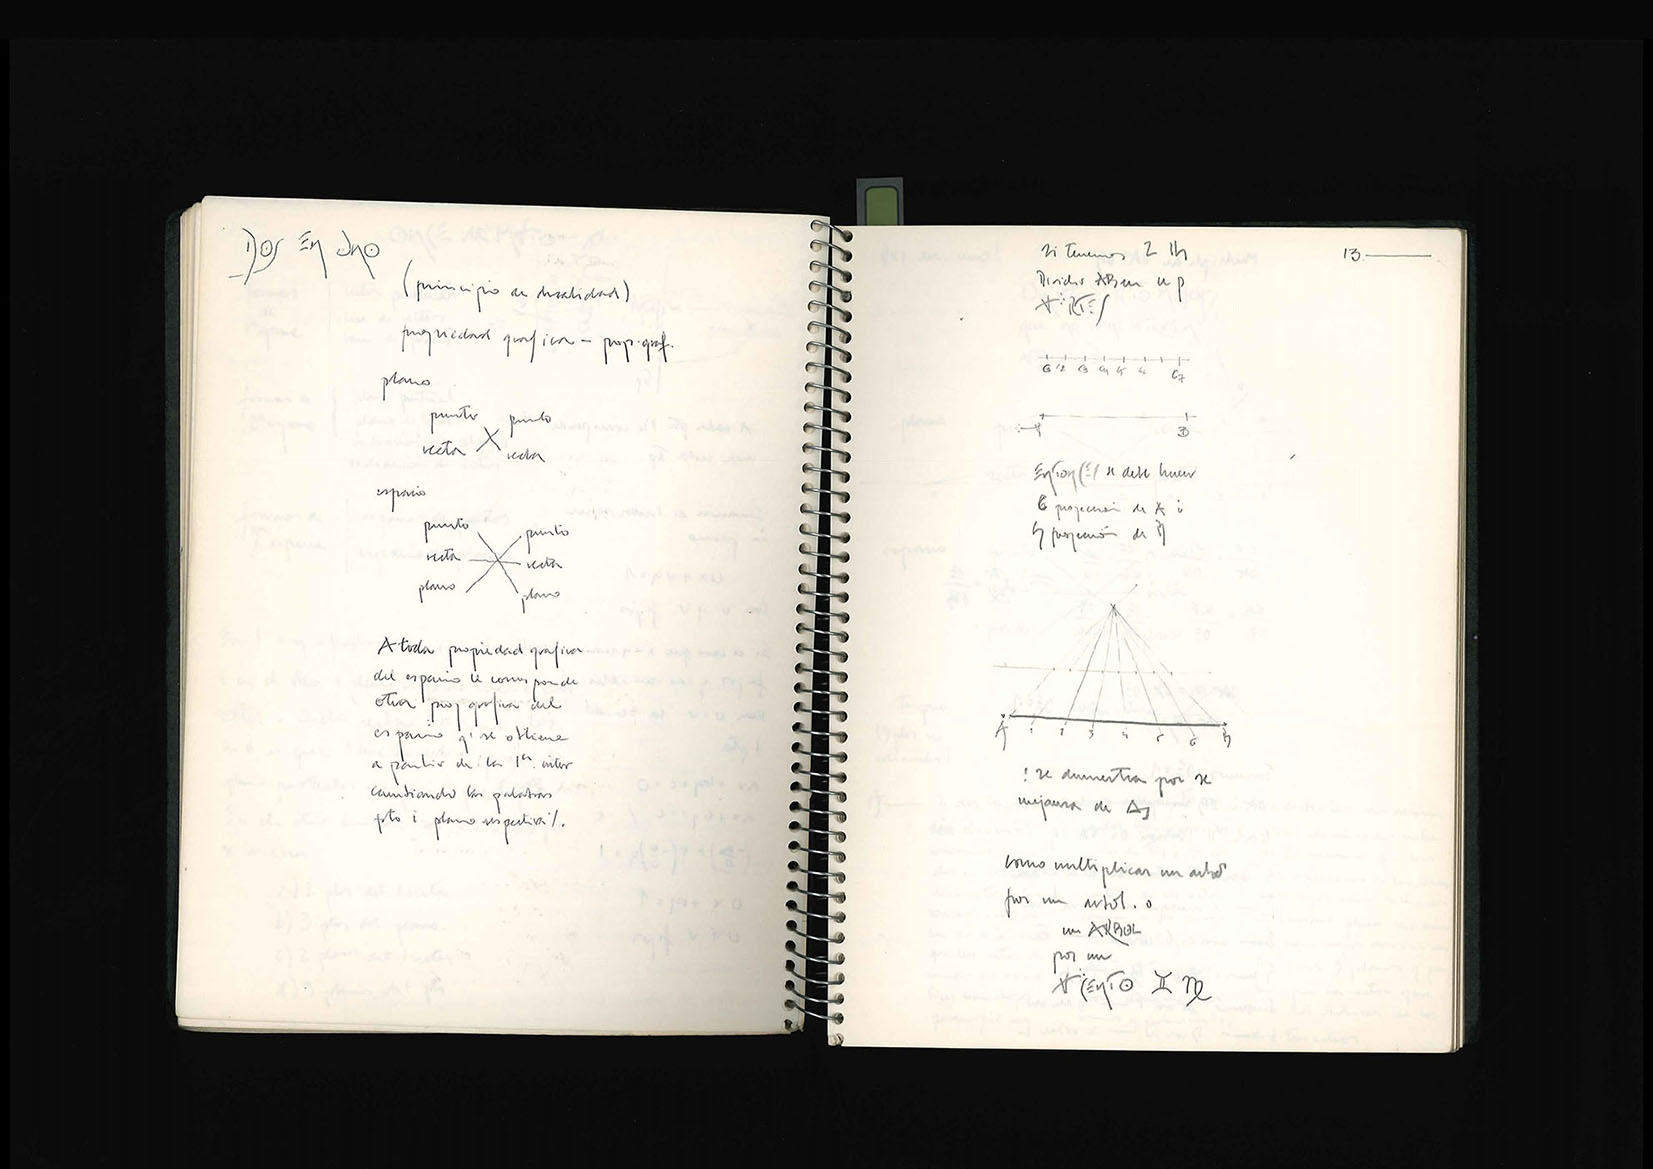 DOS EN UNO
(principio de dualidad)
propiedad grafica – prop. graf.
plano
punto punto
recta recta
espacio
punto punto
recta recta
plano plano
A toda propiedad grafica
del espacio le corresponde
otra prop grafica del
espacio q' se obtiene
a partir de la 1ª inter
cambiando las palabras
pto i plano
13
si tenemos 2
Dividir AB en
se debe hacer
6 proyección de A i
proyección de
A 1 2 3 4 5 6
se demuestra por se
mejanza de Δs
como multiplicar un arbol
por un arbol. o
un ARBOL
por un